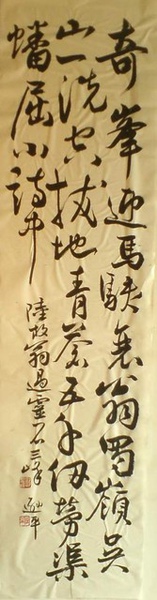 奇峯迎馬駭衰翁蜀嶺吳
山一洗空拔地青蒼五千仞勞渠
蟠屈小詩中
陸放翁過靈石三峰